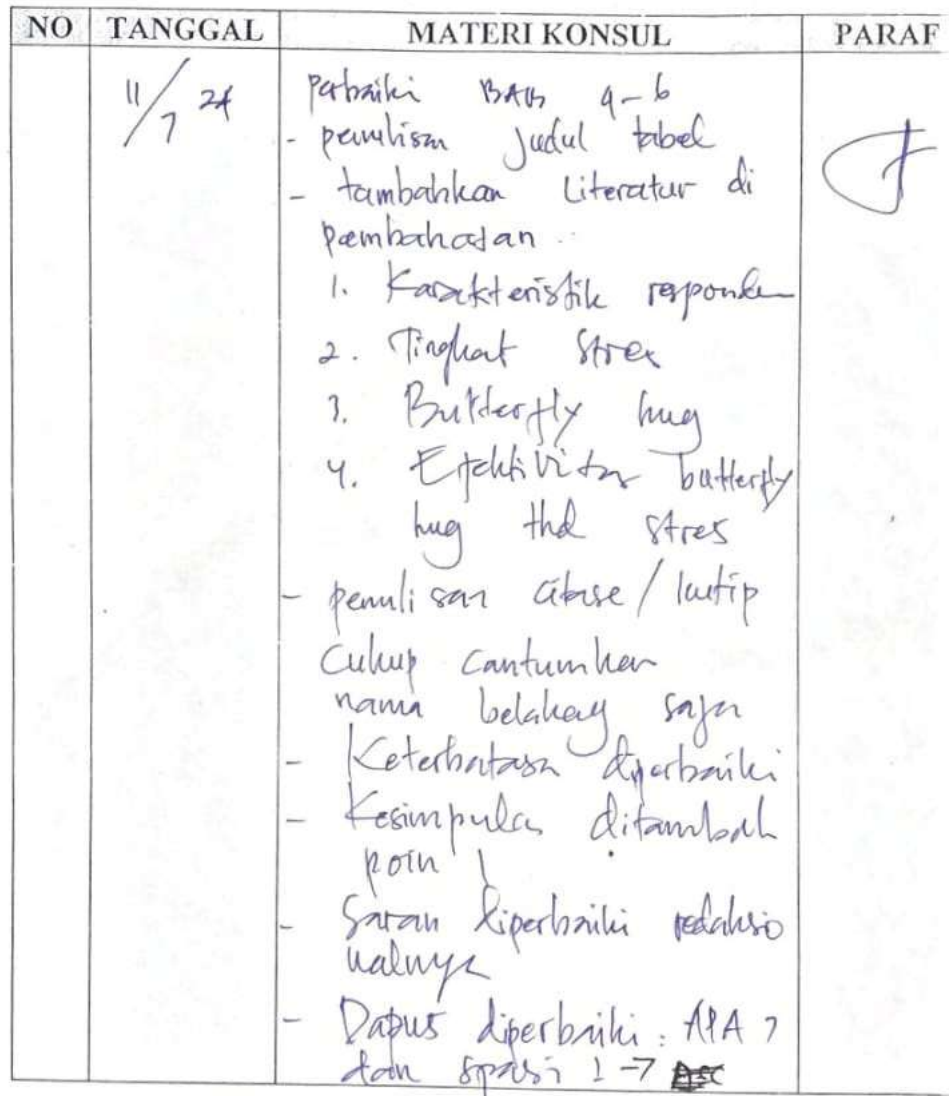 NO TANGGAL MATERI KONSUL PARAF
11/7 24 Perbaiki BAB 4-6
- penulisan judul tabel
- tambahkan Literatur di
pembahasan
1. Karakteristik responden
2. Tingkat Stres
3. Butterfly hug
4. Efektivitas butterfly
hug thd stres
- penulisan sitase/kutip
Cukup cantumkan
nama belakang saja
- Keterbatasan diperbaiki
- Kesimpulan ditambah
poin 1
- Saran diperbaiki redaksio
nalnya
- Dapus diperbaiki: APA 7
dan spasi 1 →